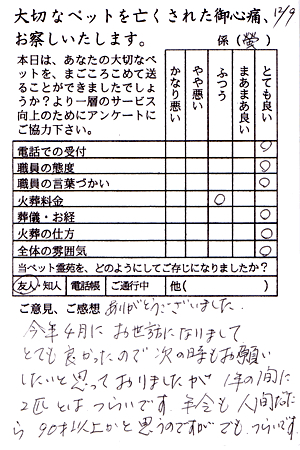 大切なペットを亡くされた御心痛、 12/9
お察しいたします。 係(螢)
本日は、あなたの大切なペットを、まごころこめて送ることができましたでしょうか?より一層のサービス向上のためにアンケートにご協力下さい。
かなり悪い
やや悪い
ふつう
まあまあ良い
とても良い
電話での受付 ○
職員の態度 ○
職員の言葉づかい ○
火葬料金 ○
葬儀・お経 ○
火葬の仕方 ○
全体の雰囲気 ○
当ペット霊苑を、どのようにしてご存じになりましたか?
友人・知人 電話帳 ご通行中 他( )
ご意見、ご感想 ありがとうございました.
今年4月に お世話になりまして
とても良かったので 次の時もお願い
したいと思っておりましたが 1年の間に
2匹とは つらいです. 年令も 人間だった
ら 90才以上かと思うのですが でも、つらいです.